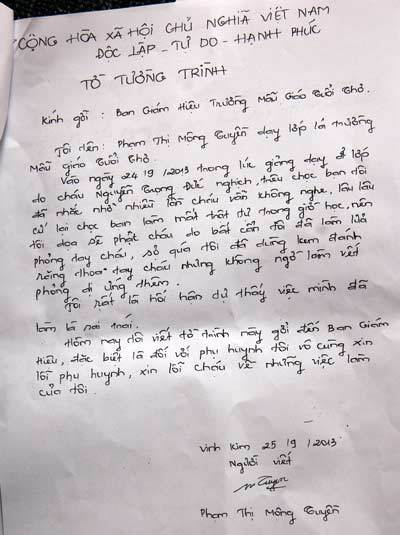 CỘNG HÒA XÃ HỘI CHỦ NGHĨA VIỆT NAM
ĐỘC LẬP - TỰ DO - HẠNH PHÚC
TỜ TƯỜNG TRÌNH
Kính gởi : Ban Giám Hiệu Trường Mẫu Giáo Tuổi Thơ.
Tôi tên : Phạm Thị Mộng Tuyền dạy lớp lá trường
Mẫu giáo Tuổi Thơ.
Vào ngày 24/9/2013 trong lúc giảng dạy ở lớp
do cháu Nguyễn Trọng Đức nghịch, trêu chọc bạn tôi
đã nhắc nhở nhiều lần cháu vẫn không nghe, lâu lâu
cứ lại chọc bạn làm mất trật tự trong giờ học, nên
tôi dọa sẽ phạt cháu do bất cẩn tôi đã làm lửa
phỏng tay cháu, sợ quá tôi đã dùng kem đánh
răng thoa tay cháu nhưng không ngờ làm vết
phỏng dị ứng thêm.
Tôi rất là hối hận dự thấy việc mình đã
làm là sai trái.
Hôm nay tôi viết tờ trình này gởi đến Ban Giám
Hiệu, đặc biệt là đối với phụ huynh tôi vô cùng xin
lỗi phụ huynh, xin lỗi cháu về những việc làm
của tôi.
Vinh Kim 25/9/2013
Người viết
Tuyền
Phạm Thị Mộng Tuyền